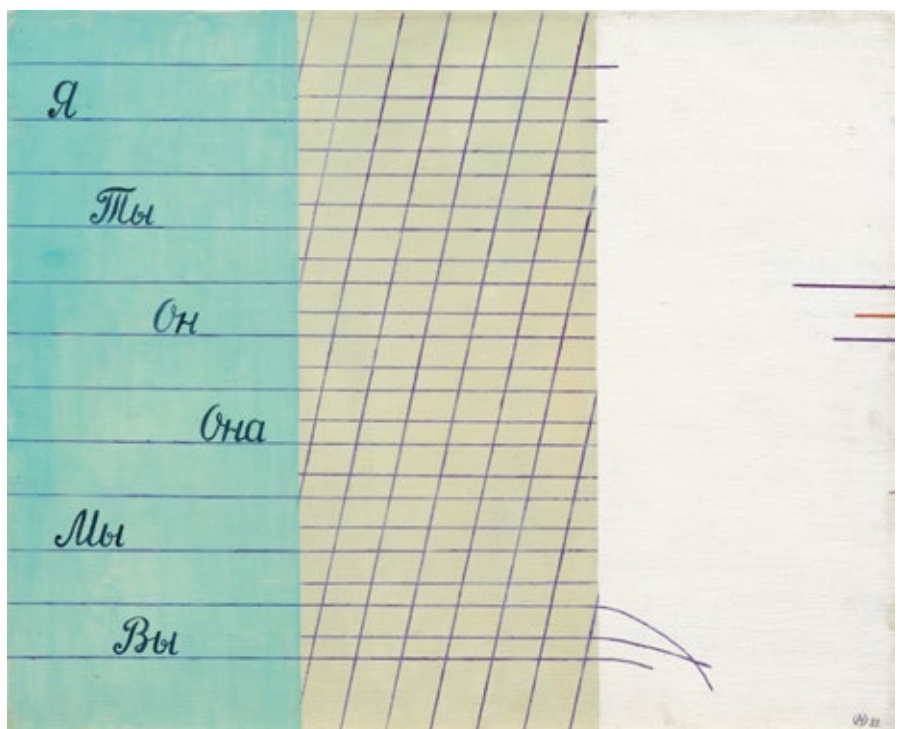 Я
Ты
Он
Она
Мы
Вы